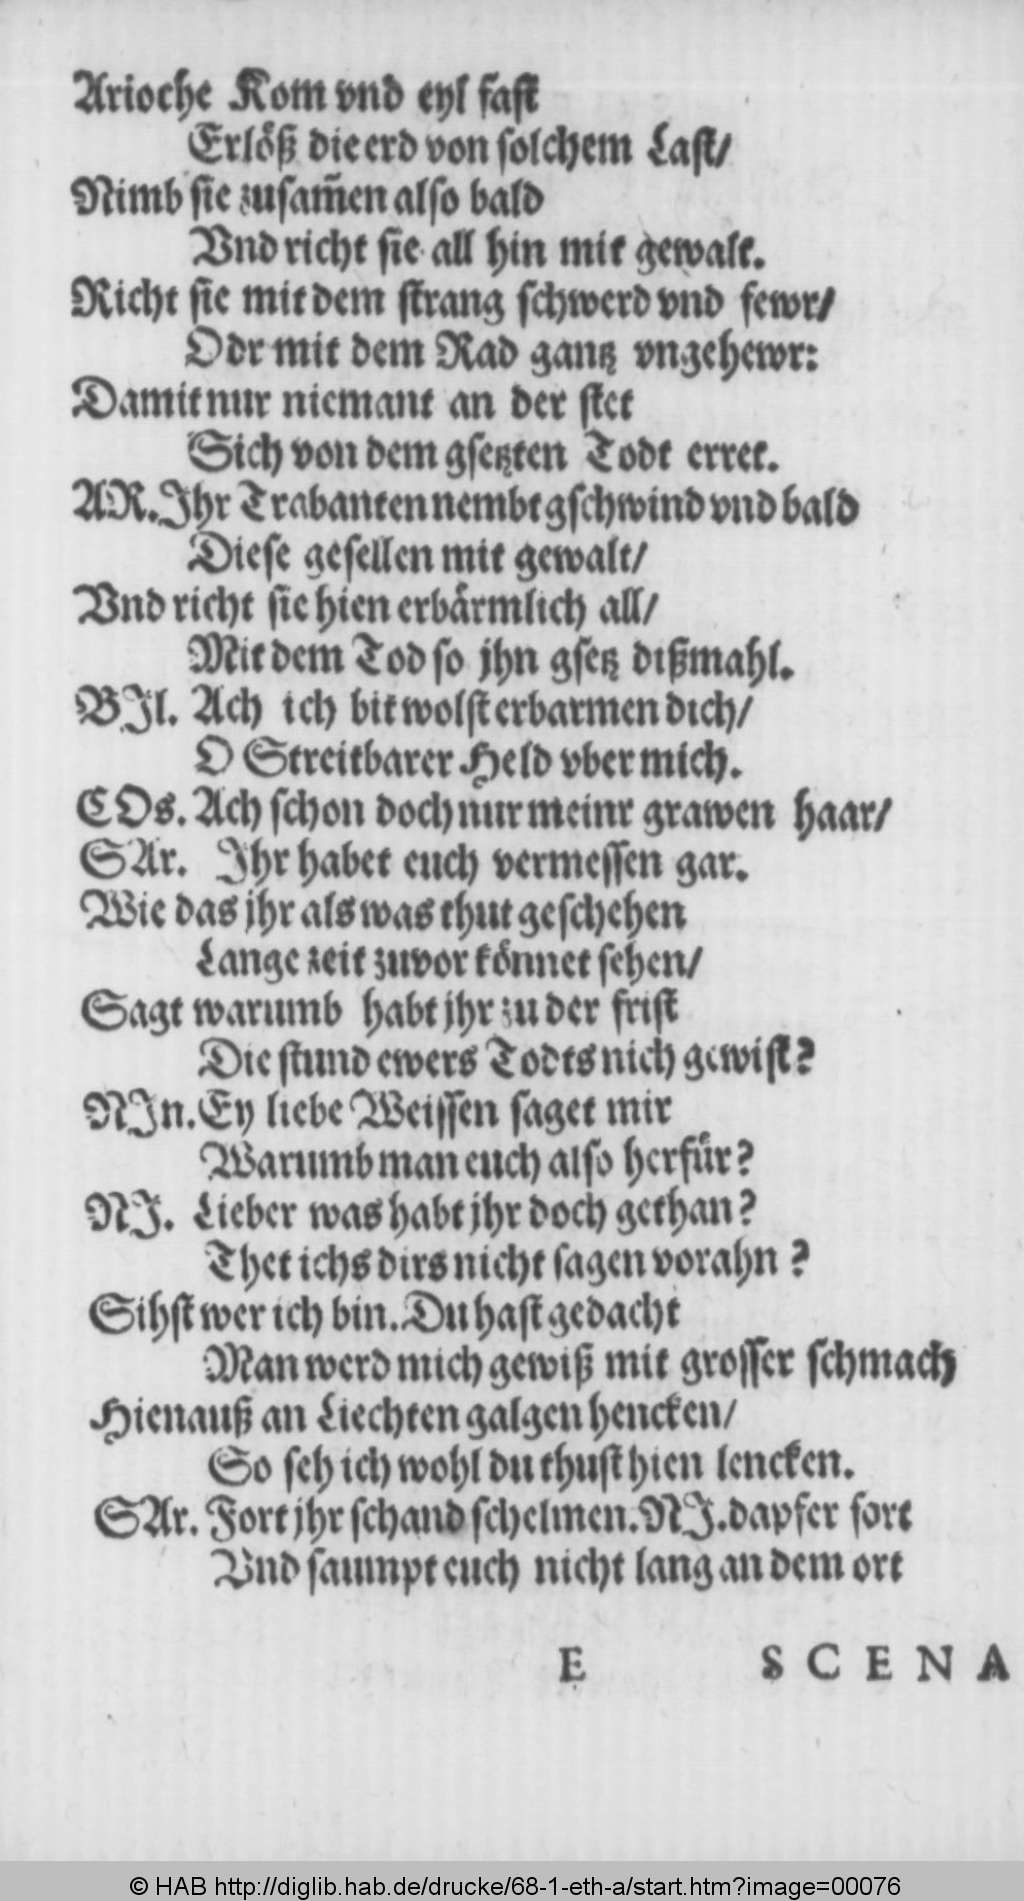 Arioche Kom vnd eyl fast
Erlöß die erd von solchem Last/
Nimb sie zusam̃en also bald
Vnd richt sie all hin mit gewalt.
Richt sie mit dem strang schwerd vnd fewr/
Odr mit dem Rad gantz vngehewr:
Damit nur niemant an der stet
Sich von dem gsetzten Todt erret.
AR. Jhr Trabanten nembt gschwind vnd bald
Diese gesellen mit gewalt/
Vnd richt sie hien erbärmlich all/
Mit dem Tod so jhn gsetz dißmahl.
BJl. Ach ich bit wolst erbarmen dich/
O Streitbarer Held vber mich.
COs. Ach schon doch nur meinr grawen haar/
SAr. Jhr habet euch vermessen gar.
Wie das jhr als was thut geschehen
Lange zeit zuvor könnet sehen/
Sagt warumb habt jhr zu der frist
Die stund ewers Todts nich gewist?
NJn. Ey liebe Weissen saget mir
Warumb man euch also herfür?
NJ. Lieber was habt jhr doch gethan?
Thet ichs dirs nicht sagen vorahn?
Sihst wer ich bin. Du hast gedacht
Man werd mich gewiß mit grosser schmach
Hienauß an Liechten galgen hencken/
So seh ich wohl du thust hien lencken.
SAr. Fort jhr schand schelmen. NJ. dapfer fort
Vnd saumpt euch nicht lang an dem ort
E SCENA
© HAB http://diglib.hab.de/drucke/68-1-eth-a/start.htm?image=00076